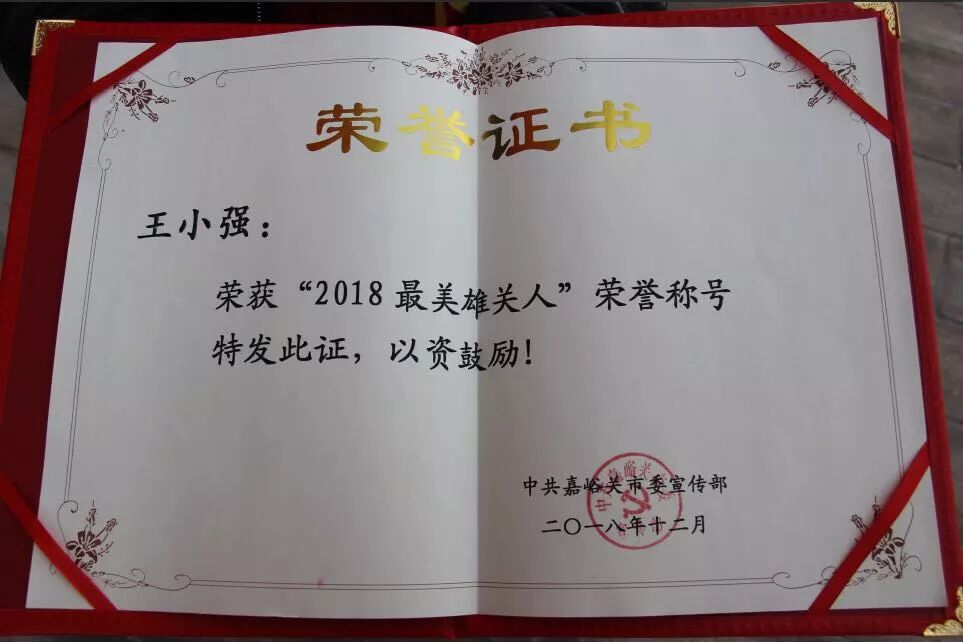 荣誉证书
王小强：
荣获“2018最美雄关人”荣誉称号
特发此证，以资鼓励！
中共嘉峪关市委宣传部
二〇一八年十二月